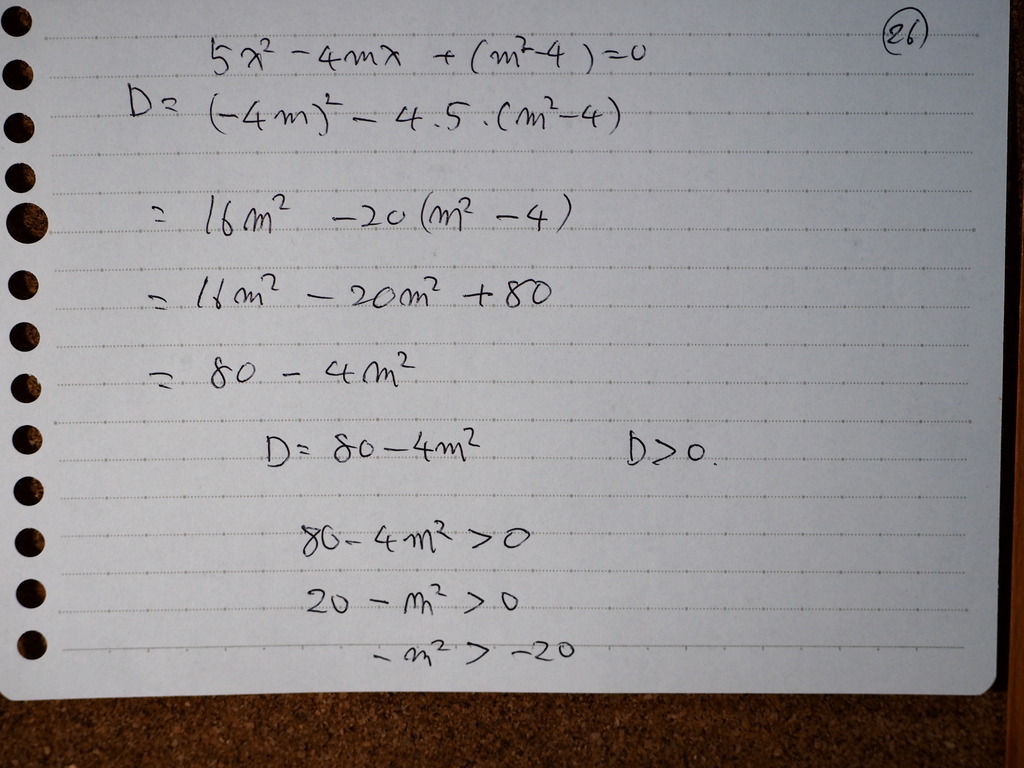 26
5x² - 4mx + (m²-4) = 0
D = (-4m)² - 4.5.(m²-4)
= 16m² - 20(m² - 4)
= 16m² - 20m² + 80
= 80 - 4m²
D = 80 - 4m² D > 0.
80 - 4m² > 0
20 - m² > 0
- m² > -20